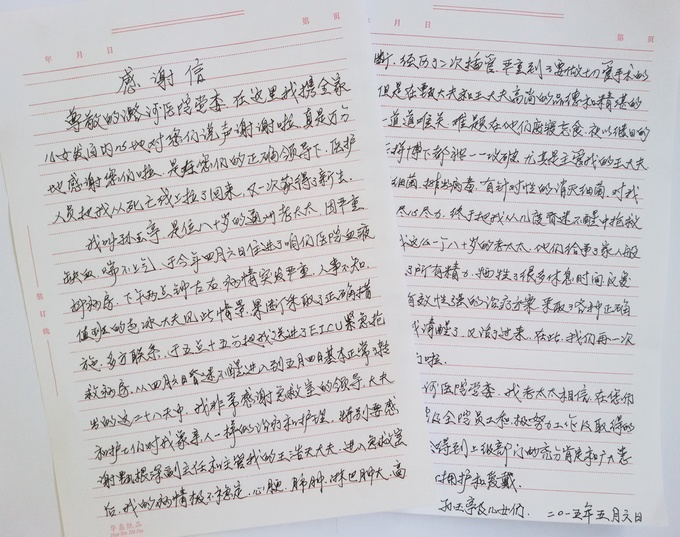 年 月 日 第 页
感谢信
尊敬的潞河医院党委，在这里我携全家
儿女发自内心地对您们说声谢谢啦，真是万分
地感谢您们啦，是在您们的正确领导下，医护
人员把我从死亡线上拉了回来，又一次获得了新生。
我叫孙玉亭，是位八十岁的通州老太太，因严重
缺血，喘不上气，于今年四月六日住进了咱们医院血液
科病房，下午两点钟左右，病情突发严重，人事不知，
值班的赵冰大夫见此情景，果断采取了正确措
施，多方联系，于五点十五分把我送进了EICU紧急抢
救病房，从四月六日昏迷不醒进入到五月四日基本正常转
出的这二十八天中，我非常感谢急救室的领导、大夫
和护士们对我象亲人一样的治疗和护理，特别要感
谢甄根深副主任和主管我的王浩天大夫，进入急救室
后，我的病情极不稳定，心、肺肿，淋巴肿大，高
装订线
华泰纸品
年 月 日 第 页
断，经历了二次插管，严重到了要做切管手术的
但是在甄大夫和王大夫高尚的品德和精湛的
一道道难关，难题在他们废寝忘食，夜以继日的
拼搏下都被一一攻破，尤其是主管我的王大夫
细菌，排出病毒，有针对性的消灭细菌，对我
尽心尽力，终于把我从几度昏迷不醒中抢救
我这么一个八十岁的老太太，他们给予了家人般
了所有精力，牺牲了很多休息时间反复
有效性强的治疗方案，采取了各种正确
我清醒了，又活了过来，在此，我们再一次
啦。
河医院党委，我老太太相信，在您们
及全院员工积极努力工作及取得的
得到上级部门的充分肯定和广大患
拥护和爱戴。
孙玉亭及儿女们，二〇一五年五月六日